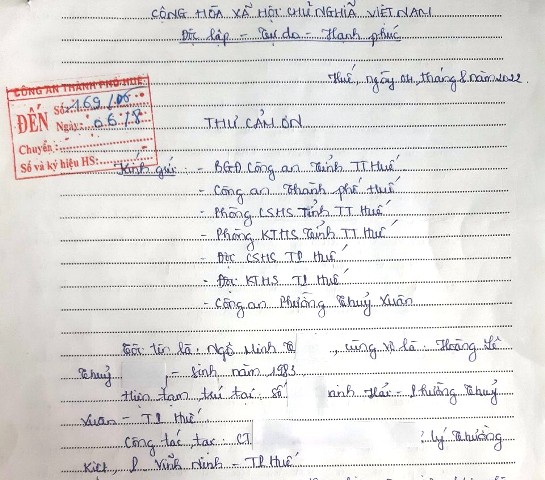 CỘNG HÒA XÃ HỘI CHỦ NGHĨA VIỆT NAM
Độc lập - Tự do - Hạnh phúc
Huế, ngày 04, tháng 8 năm 2022
CÔNG AN THÀNH PHỐ HUẾ
ĐẾN
Số: 169/05
Ngày: 06/8
Chuyển:
Số và ký hiệu HS:
THƯ CẢM ƠN
Kính gửi - BGĐ Công an Tỉnh TT Huế
- Công an Thành phố Huế
- Phòng CSHS Tỉnh TT Huế
- Phòng KTHS Tỉnh TT Huế
- Đội CSHS TP Huế
- Đội KTHS TP Huế
- Công an Phường Thuỷ Xuân
Tôi tên là: Ngô Minh T , cùng vợ là: Hoàng Lê
Thuỷ , - Sinh năm 1983
Hiện tạm trú tại: số - Phường Thuỷ
Xuân - TP Huế.
Công tác tại: CT : Lý Thường
Kiệt, P Vĩnh Ninh - TP Huế